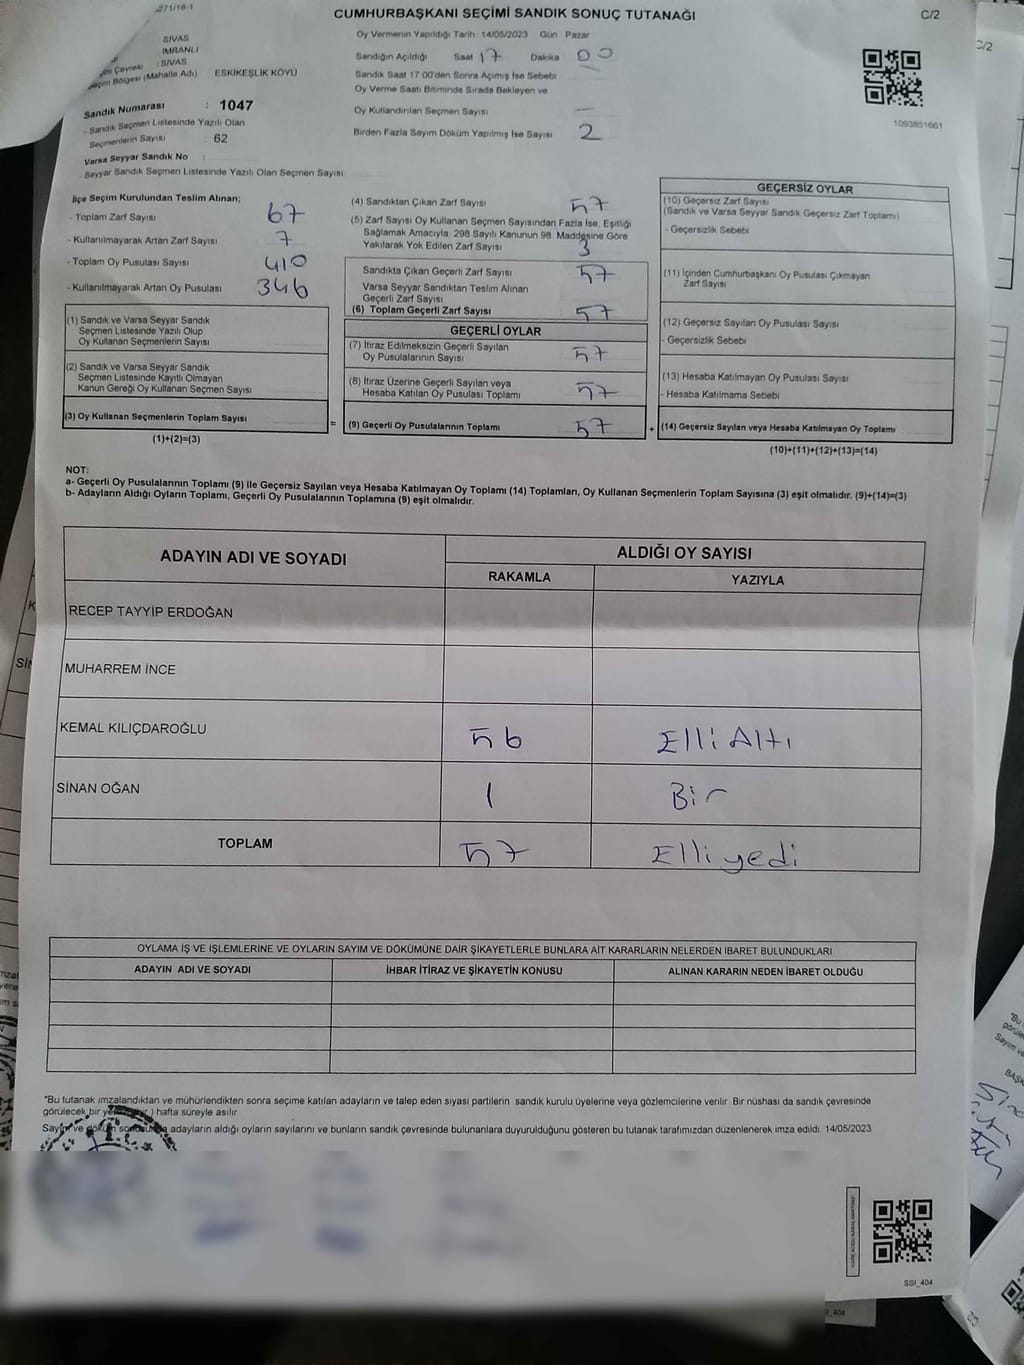 CUMHURBAŞKANI SEÇİMİ SANDIK SONUÇ TUTANAĞI
C/2
SİVAS
İMRANLI
: SİVAS
Çevresi
Seçim Bölgesi (Mahalle Adı) ESKİKEŞLİK KÖYÜ
Sandık Numarası : 1047
- Sandık Seçmen Listesinde Yazılı Olan
Seçmenlerin Sayısı : 62
Varsa Seyyar Sandık No :
- Seyyar Sandık Seçmen Listesinde Yazılı Olan Seçmen Sayısı:
Oy Vermenin Yapıldığı Tarih 14/05/2023 Gün Pazar
Sandığın Açıldığı Saat 17 Dakika 00
Sandık Saat 17:00'den Sonra Açımış İse Sebebi
Oy Verme Saati Bitiminde Sırada Bekleyen ve
Oy Kullandırılan Seçmen Sayısı —
Birden Fazla Sayım Döküm Yapılmış İse Sayısı 2
1093851661
İlçe Seçim Kurulundan Teslim Alınan;
- Toplam Zarf Sayısı 67
- Kullanılmayarak Artan Zarf Sayısı 7
- Toplam Oy Pusulası Sayısı 410
- Kullanılmayarak Artan Oy Pusulası 346
(1) Sandık ve Varsa Seyyar Sandık
Seçmen Listesinde Yazılı Olup
Oy Kullanan Seçmenlerin Sayısı
(2) Sandık ve Varsa Seyyar Sandık
Seçmen Listesinde Kayıtlı Olmayan
Kanun Gereği Oy Kullanan Seçmen Sayısı
(3) Oy Kullanan Seçmenlerin Toplam Sayısı
(1)+(2)=(3)
=
(4) Sandıktan Çıkan Zarf Sayısı 57
(5) Zarf Sayısı Oy Kullanan Seçmen Sayısından Fazla İse, Eşitliği
Sağlamak Amacıyla; 298 Sayılı Kanunun 98. Maddesine Göre
Yakılarak Yok Edilen Zarf Sayısı 3
Sandıkta Çıkan Geçerli Zarf Sayısı 57
Varsa Seyyar Sandıktan Teslim Alınan
Geçerli Zarf Sayısı
(6) Toplam Geçerli Zarf Sayısı 57
GEÇERLİ OYLAR
(7) İtiraz Edilmeksizin Geçerli Sayılan
Oy Pusulalarının Sayısı 57
(8) İtiraz Üzerine Geçerli Sayılan veya
Hesaba Katılan Oy Pusulası Toplamı 57
(9) Geçerli Oy Pusulalarının Toplamı 57
+
GEÇERSİZ OYLAR
(10) Geçersiz Zarf Sayısı
(Sandık ve Varsa Seyyar Sandık Geçersiz Zarf Toplamı)
- Geçersizlik Sebebi
(11) İçinden Cumhurbaşkanı Oy Pusulası Çıkmayan
Zarf Sayısı
(12) Geçersiz Sayılan Oy Pusulası Sayısı
- Geçersizlik Sebebi
(13) Hesaba Katılmayan Oy Pusulası Sayısı
- Hesaba Katılmama Sebebi
(14) Geçersiz Sayılan veya Hesaba Katılmayan Oy Toplamı
(10)+(11)+(12)+(13)=(14)
NOT:
a- Geçerli Oy Pusulalarının Toplamı (9) ile Geçersiz Sayılan veya Hesaba Katılmayan Oy Toplamı (14) Toplamları, Oy Kullanan Seçmenlerin Toplam Sayısına (3) eşit olmalıdır. (9)+(14)=(3)
b- Adayların Aldığı Oyların Toplamı, Geçerli Oy Pusulalarının Toplamına (9) eşit olmalıdır.
ADAYIN ADI VE SOYADI
ALDIĞI OY SAYISI
RAKAMLA YAZIYLA
RECEP TAYYİP ERDOĞAN
MUHARREM İNCE
KEMAL KILIÇDAROĞLU 56 Elli Altı
SİNAN OĞAN 1 Bir
TOPLAM 57 Elli yedi
OYLAMA İŞ VE İŞLEMLERİNE VE OYLARIN SAYIM VE DÖKÜMÜNE DAİR ŞİKAYETLERLE BUNLARA AİT KARARLARIN NELERDEN İBARET BULUNDUKLARI
ADAYIN ADI VE SOYADI İHBAR İTİRAZ VE ŞİKAYETİN KONUSU ALINAN KARARIN NEDEN İBARET OLDUĞU
*Bu tutanak imzalandıktan ve mühürlendikten sonra seçime katılan adayların ve talep eden siyasi partilerin sandık kurulu üyelerine veya gözlemcilerine verilir. Bir nüshası da sandık çevresinde
görülecek bir yere ) hafta süreyle asılır.
Sayım ve döküm adayların aldığı oyların sayılarını ve bunların sandık çevresinde bulunanlara duyurulduğunu gösteren bu tutanak tarafımızdan düzenlenerek imza edildi. 14/05/2023
SSI_404